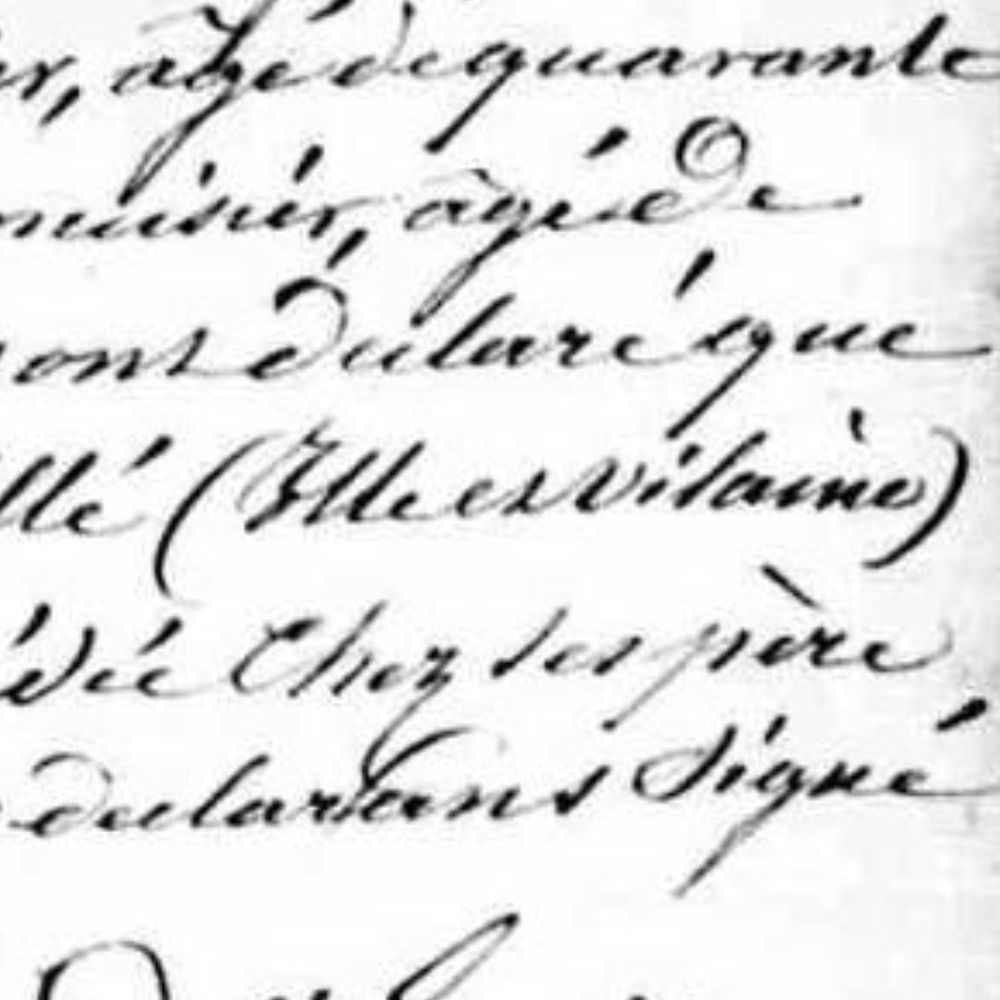 er, âgé de quarante
nuisier, âgé de
ont déclaré que
llé (Ille et vilaine)
dée Chez ses père
declarans Signé